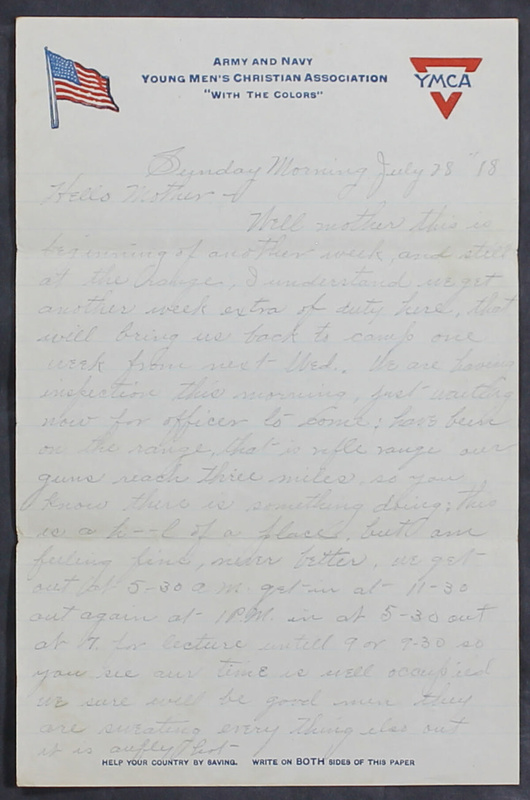 ARMY AND NAVY
YOUNG MEN'S CHRISTIAN ASSOCIATION
"WITH THE COLORS"
YMCA
Sunday Morning July 28" 18
Hello Mother -
Well mother this is
beginning of another week, and still
at the range, I understand we get
another week extra of duty here, that
will bring us back to camp one
week from next Wed., We are having
inspection this morning, just waiting
now for officer to come; have been
on the range, that is rifle range our
guns reach three miles, so you
know there is something doing; this
is a h--l of a place, but am
feeling fine, never better, we get
out at 5-30 a.m. get in at 11-30
out again at 1 P.M. in at 5-30 out
at 7. for lecture untill 9 or 9-30 so
you see our time is well occupied
we sure will be good men they
are sweating every thing else out
it is hot
HELP YOUR COUNTRY BY SAVING. WRITE ON BOTH SIDES OF THIS PAPER